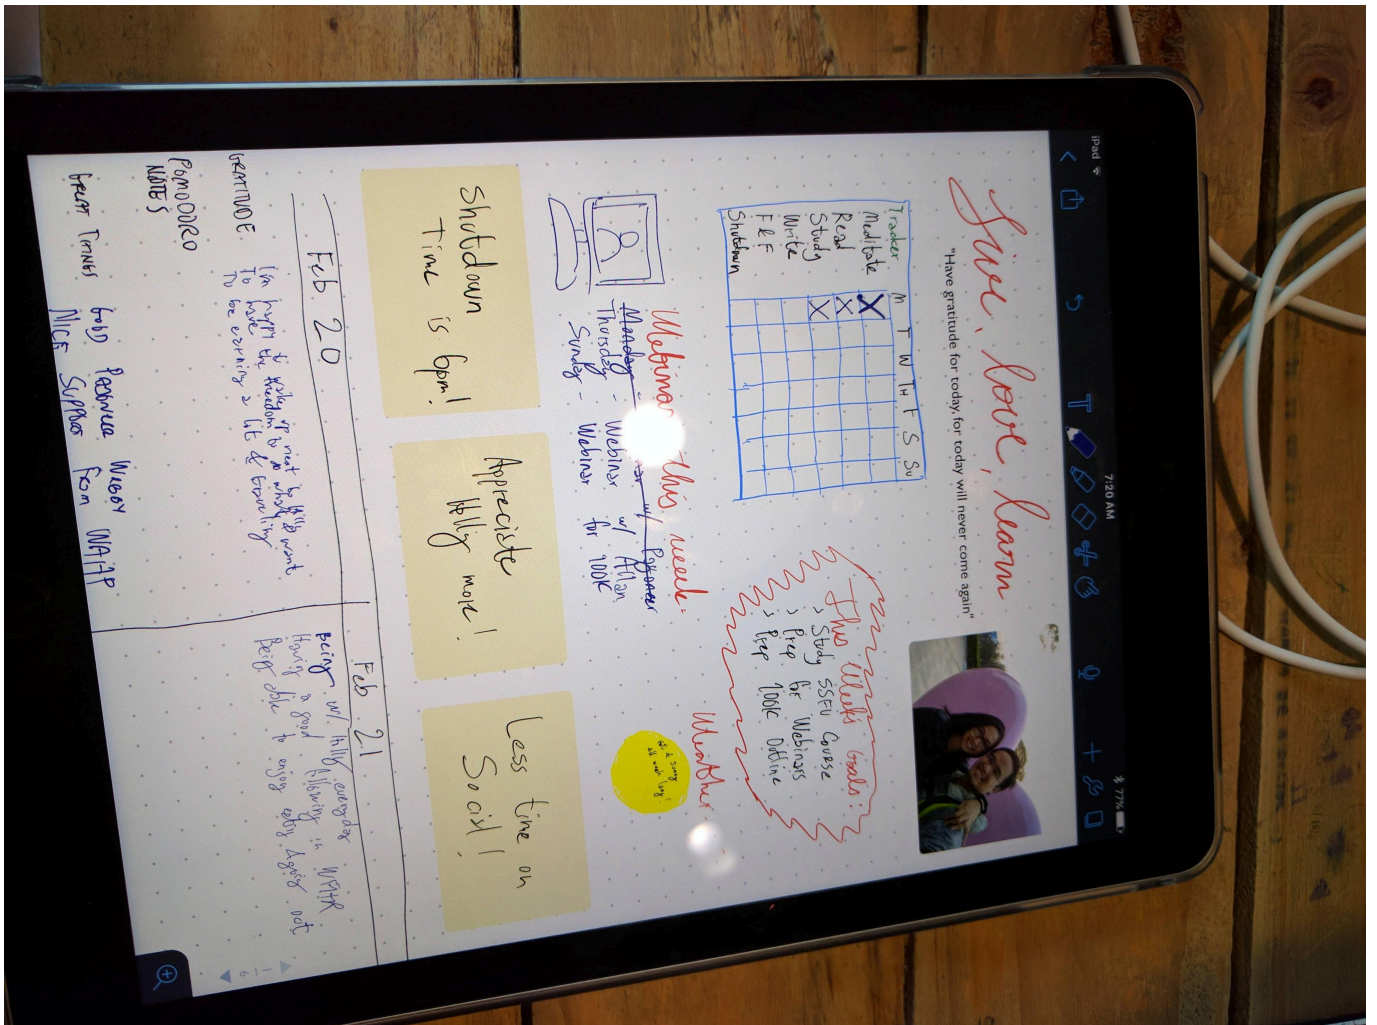 iPad
7:20 AM
77%
Live, love, learn
"Have gratitude for today, for today will never come again"
Tracker M T W TH F S SU
Meditate X
Read X
Study X
Write
F&F
Shutdown
This Week's Goals:
> Study SSFU Course
> Prep for Webinars
> Prep 100K Outline
Webinar this week:
Monday - w/ Pgoneer
Thursday - Webinar w/ Allan
Sunday - Webinar for 100K
Weather
all week long!
Shutdown
Time is 6pm!
Appreciate
Holly more!
Less time on
Social!
Feb 20
Feb 21
GRATITUDE
I'm happy to wake up next to Holly
To have the freedom to do what I want
To be earning a lot & traveling
Being w/ Holly everyday
Having a good following in WAITR
Being able to enjoy eating & going out
POMODORO
NOTES
GREAT THINGS
GOOD WEBBY
NICE SUPPORT FROM WAITAP
1
6